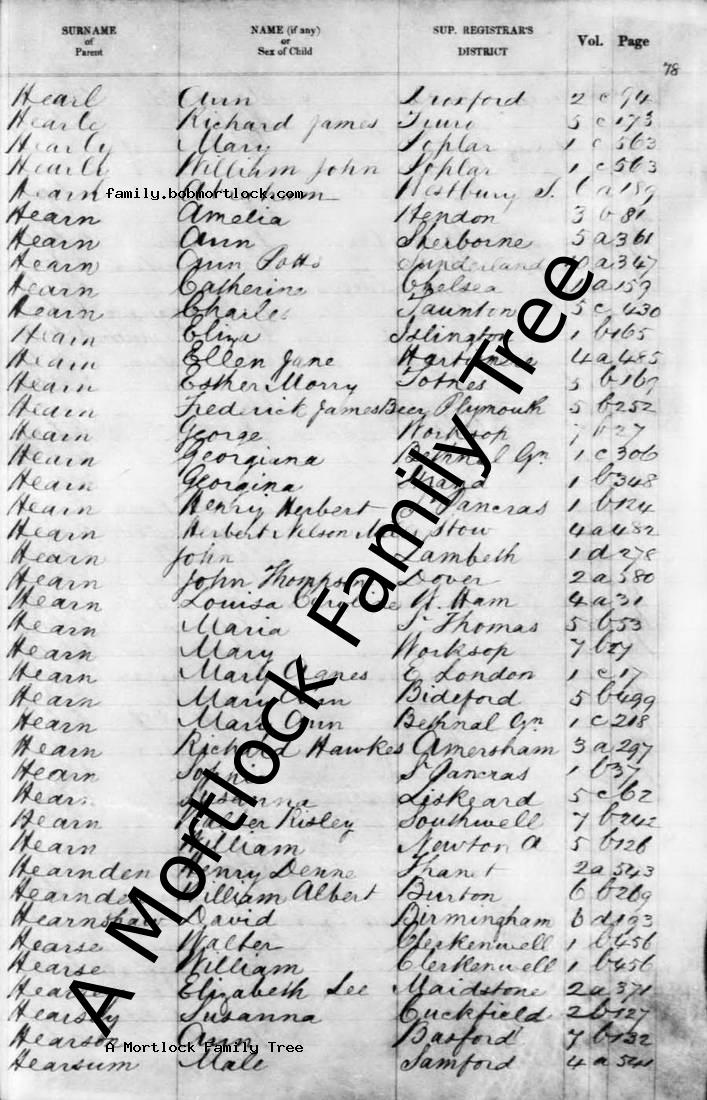 SURNAME of Parent NAME (if any) or Sex of Child SUP. REGISTRAR'S DISTRICT Vol. Page
78
Hearl Ann Droxford 2 c 94
Hearle Richard James Truro 5 c 173
Hearly Mary Poplar 1 c 563
Hearly William John Poplar 1 c 563
Hearn Westbury S. 6 a 189
family.bobmortlock.com
Hearn Amelia Hendon 3 b 81
Hearn Ann Sherborne 5 a 361
Hearn Ann Potts Sunderland a 347
Hearn Catherine Chelsea a 159
Hearn Charles Taunton 5 c 430
Hearn Eliza Islington 1 b 165
Hearn Ellen Jane 4 a 485
Hearn Esther Morry Totnes 5 b 169
Hearn Frederick James Beer Plymouth 5 b 252
Hearn George Worksop 7 b 27
Hearn Georgiana Bethnal Gn 1 c 306
Hearn Georgina Strand 1 b 348
Hearn Henry Herbert Pancras 1 b 124
Hearn Herbert Nelson Stow 4 a 482
Hearn John Lambeth 1 d 278
Hearn John Thompson Dover 2 a 580
Hearn Louisa Caroline W. Ham 4 a 31
Hearn Maria St Thomas 5 b 53
Hearn Mary Worksop 7 b 27
Hearn Mary Agnes E London 1 c 17
Hearn Mary Ann Bideford 5 b 499
Hearn Mary Ann Bethnal Gn 1 c 218
Hearn Richard Hawkes Amersham 3 a 297
Hearn St Pancras 1 b 37
Hearn Susanna Liskeard 5 c 62
Hearn Walter Risley Southwell 7 b 242
Hearn William Newton A 5 b 126
Hearnden Henry Denne Thanet 2 a 543
Hearnden William Albert Burton 6 b 269
Hearnshaw David Birmingham 6 d 193
Hearse Walter Clerkenwell 1 b 456
Hearse William Clerkenwell 1 b 456
Elizabeth Lee Maidstone 2 a 371
Hearsey Susanna Cuckfield 2 b 127
Hearson Ann Basford 7 b 132
A Mortlock Family Tree
Hearsum Male Samford 4 a 541
A Mortlock Family Tree